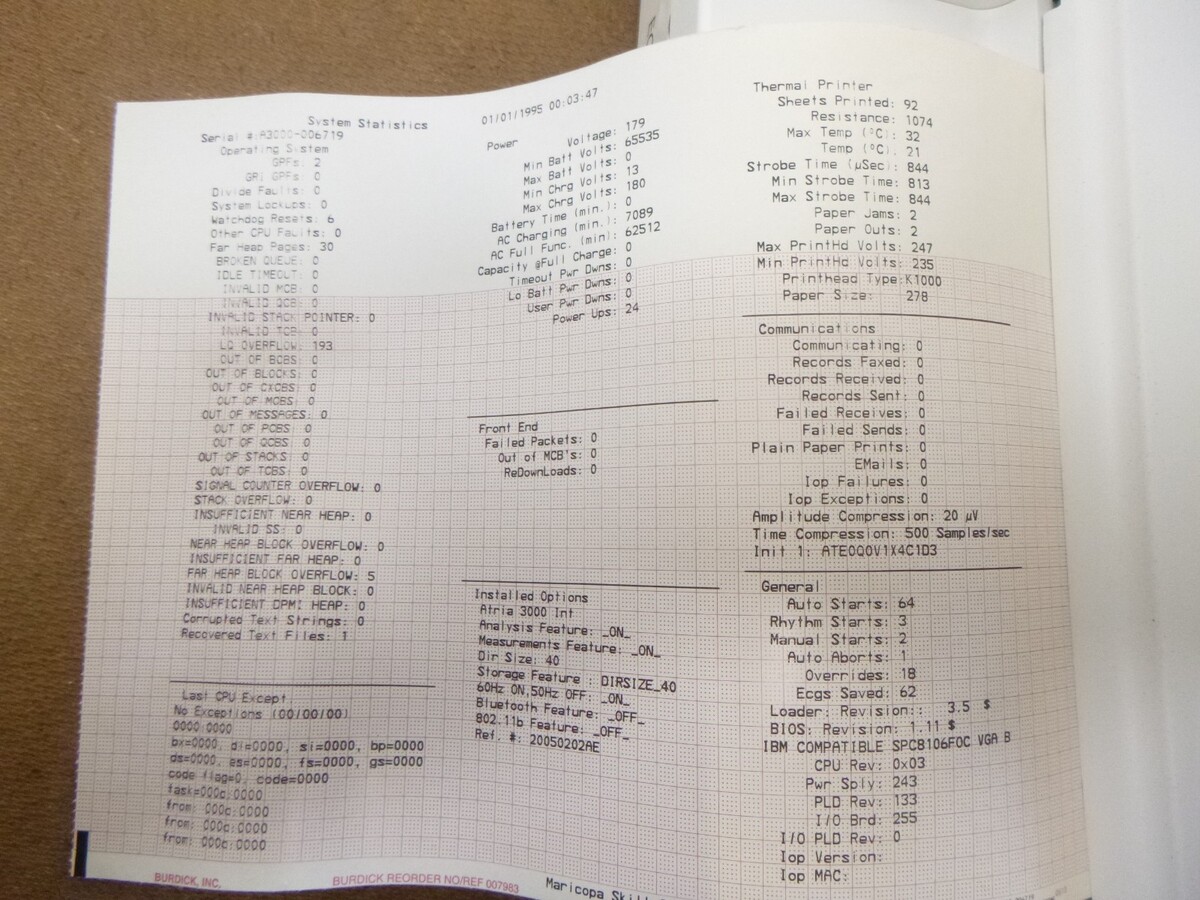 System Statistics
01/01/1995 00:03:47
Serial #:A3000-006719
Operating System
GPFs: 2
GRI GPFs: 0
Divide Faults: 0
System Lockups: 0
Watchdog Resets: 6
Other CPU Faults: 0
Far Heap Pages: 30
BROKEN QUEUE: 0
IDLE TIMEOUT: 0
INVALID MCB: 0
INVALID QCB: 0
INVALID STACK POINTER: 0
INVALID TCB: 0
LQ OVERFLOW: 193
OUT OF BCBS: 0
OUT OF BLOCKS: 0
OUT OF CXCBS: 0
OUT OF MCBS: 0
OUT OF MESSAGES: 0
OUT OF PCBS: 0
OUT OF QCBS: 0
OUT OF STACKS: 0
OUT OF TCBS: 0
SIGNAL COUNTER OVERFLOW: 0
STACK OVERFLOW: 0
INSUFFICIENT NEAR HEAP: 0
INVALID SS: 0
NEAR HEAP BLOCK OVERFLOW: 0
INSUFFICIENT FAR HEAP: 0
FAR HEAP BLOCK OVERFLOW: 5
INVALID NEAR HEAP BLOCK: 0
INSUFFICIENT DPMI HEAP: 0
Corrupted Text Strings: 0
Recovered Text Files: 1
Last CPU Except.
No Exceptions (00/00/00)
0000:0000
bx=0000, di=0000, si=0000, bp=0000
ds=0000, es=0000, fs=0000, gs=0000
code flag=0, code=0000
task=000c:0000
from: 000c:0000
from: 000c:0000
from: 000c:0000
Power
Voltage: 179
Min Batt Volts: 65535
Max Batt Volts: 0
Min Chrg Volts: 13
Max Chrg Volts: 180
Battery Time (min.): 0
AC Charging (min.): 7089
AC Full Func. (min): 62512
Capacity @Full Charge: 0
Timeout Pwr Dwns: 0
Lo Batt Pwr Dwns: 0
User Pwr Dwns: 0
Power Ups: 24
Front End
Failed Packets: 0
Out of MCB's: 0
ReDownLoads: 0
Installed Options
Atria 3000 Int
Analysis Feature: _ON_
Measurements Feature: _ON_
Dir Size: 40
Storage Feature : DIRSIZE_40
60Hz ON,50Hz OFF: _ON_
Bluetooth Feature: _OFF_
802.11b Feature: _OFF_
Ref. #: 20050202AE
Thermal Printer
Sheets Printed: 92
Resistance: 1074
Max Temp (°C): 32
Temp (°C): 21
Strobe Time (µSec): 844
Min Strobe Time: 813
Max Strobe Time: 844
Paper Jams: 2
Paper Outs: 2
Max PrintHd Volts: 247
Min PrintHd Volts: 235
Printhead Type:K1000
Paper Size: 278
Communications
Communicating: 0
Records Faxed: 0
Records Received: 0
Records Sent: 0
Failed Receives: 0
Failed Sends: 0
Plain Paper Prints: 0
EMails: 0
Iop Failures: 0
Iop Exceptions: 0
Amplitude Compression: 20 µV
Time Compression: 500 Samples/sec
Init 1: ATE0Q0V1X4C1D3
General
Auto Starts: 64
Rhythm Starts: 3
Manual Starts: 2
Auto Aborts: 1
Overrides: 18
Ecgs Saved: 62
Loader: Revision:: 3.5 $
BIOS: Revision: 1.11 $
IBM COMPATIBLE SPC8106FOC VGA B
CPU Rev: 0x03
Pwr Sply: 243
PLD Rev: 133
I/O Brd: 255
I/O PLD Rev: 0
Iop Version:
Iop MAC:
BURDICK, INC.
BURDICK REORDER NO/REF 007983
Maricopa Skill